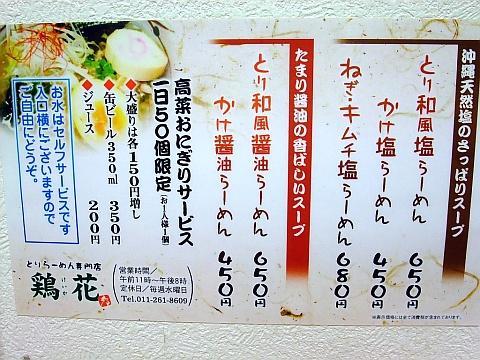 沖縄天然塩のさっぱりスープ
とり和風塩らーめん 650円
かけ塩らーめん 450円
ねぎ・キムチ塩らーめん 680円
たまり醤油の香ばしいスープ
とり和風醤油らーめん 650円
かけ醤油らーめん 450円
高菜おにぎりサービス
一日50個限定(お1人様1個)
◆大盛りは各150円増し
◆缶ビール350ml 350円
◆ジュース 200円
お水はセルフサービスです
入口横にございますので
ご自由にどうぞ。
とりらーめん専門店
鶏花
営業時間/
午前11時〜午後8時
定休日/毎週水曜日
Tel.011-261-8609
※表示価格には全て消費税が含まれております。